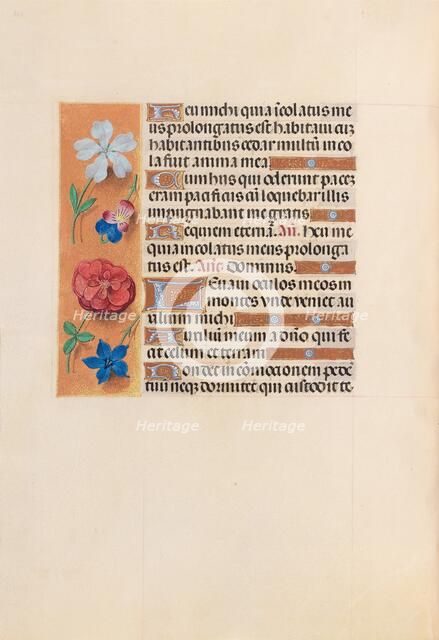 Heu michi quia icolatus me
us prolongatus est habitaui cuz
habitantibus cedar multū in co
la fuit anima mea
Cum hiis qui oderunt pacez
eram pacificus cū loquebar illis
impugnabant me gratis
Requiem eternā. Añ. Heu me
quia incolatus meus prolonga
tus est. Añe Dominus.
Leuaui oculos meos in
montes vnde veniet au
xilium michi
Auxiliū meum a dño qui fe
cit celum et terram
Non det in comocionem pede
tuū neqz dormitet qui custodit te
Heritage Images
Heritage
Heritage
Heritage
Heritage
Heritage